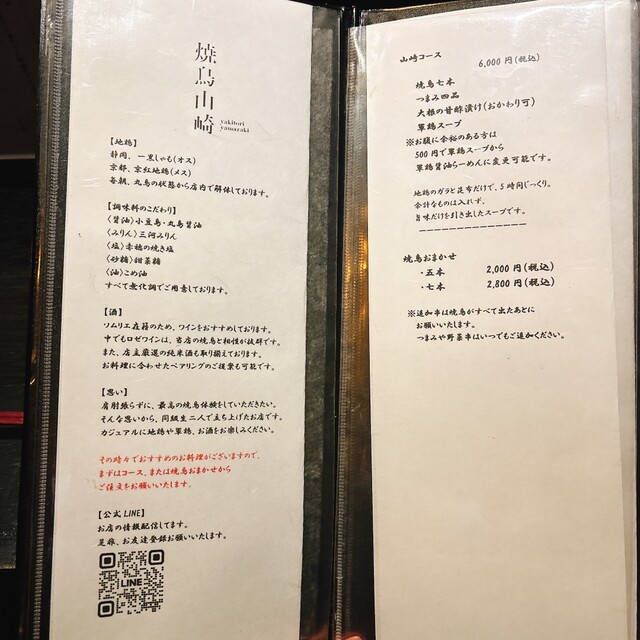 焼鳥山崎
yakitori
yamazaki
【地鶏】
静岡、一黒しゃも(オス)
京都、京紅地鶏(メス)
毎朝、丸鳥の状態から店内で解体しております。
【調味料のこだわり】
〈醤油〉小豆島・丸島醤油
〈みりん〉三河みりん
〈塩〉赤穂の焼き塩
〈砂糖〉甜菜糖
〈油〉こめ油
すべて無化調でご用意しております。
【酒】
ソムリエ在籍のため、ワインをおすすめしております。
中でもロゼワインは、当店の焼鳥と相性が抜群です。
また、店主厳選の純米酒も取り揃えております。
お料理に合わせたペアリングのご提案も可能です。
【思い】
肩肘張らずに、最高の焼鳥体験をしていただきたい。
そんな思いから、同級生二人で立ち上げたお店です。
カジュアルに地鶏や軍鶏、お酒をお楽しみください。
その時々でおすすめのお料理がございますので、
まずはコース、または焼鳥おまかせから
ご注文をお願いいたします。
【公式LINE】
お店の情報配信してます。
是非、お友達登録お願いいたします。
LINE
山崎コース 6,000円(税込)
焼鳥七本
つまみ四品
大根の甘酢漬け(おかわり可)
軍鶏スープ
※お腹に余裕のある方は
500円で軍鶏スープから
軍鶏醤油らーめんに変更可能です。
地鶏のガラと昆布だけで、5時間じっくり。
余計なものは入れず、
旨味だけを引き出したスープです。
焼鳥おまかせ
・五本 2,000円(税込)
・七本 2,800円(税込)
※追加串は焼鳥がすべて出たあとに
お願いいたします。
つまみや野菜串はいつでもご追加ください。